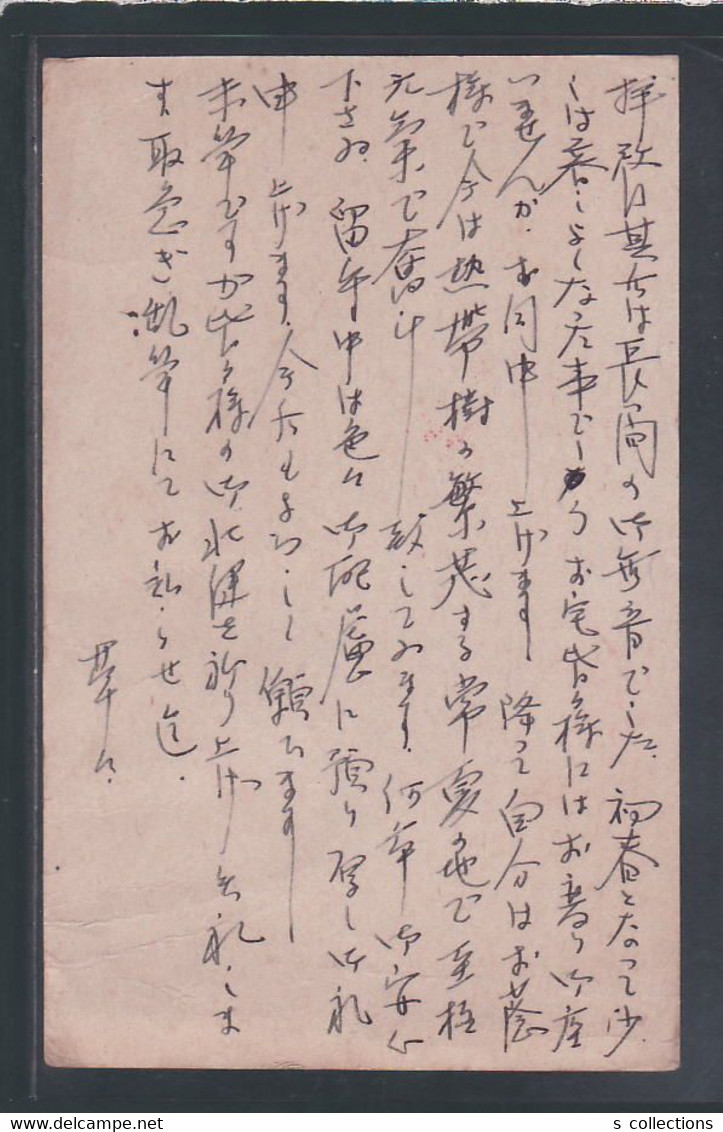 拝啓 其后は長い間の御無音でした。初春となって少
しは暮しよくなった事でしょう お宅皆々様にはお変り御座
いませんか。お伺申し上げます 降って自分はお蔭
様で今は熱帯樹の繁茂する常夏の地で至極
元気で奮斗致して居ます。何卒御安心
下さい。留守中は色々御配慮に預り厚く御礼
申し上げます。今后もよろしく願ひます
末筆ですが皆々様の御壮健を祈り上げ失礼しま
す 取急ぎ乱筆にてお知らせ迄。
草々
s collections